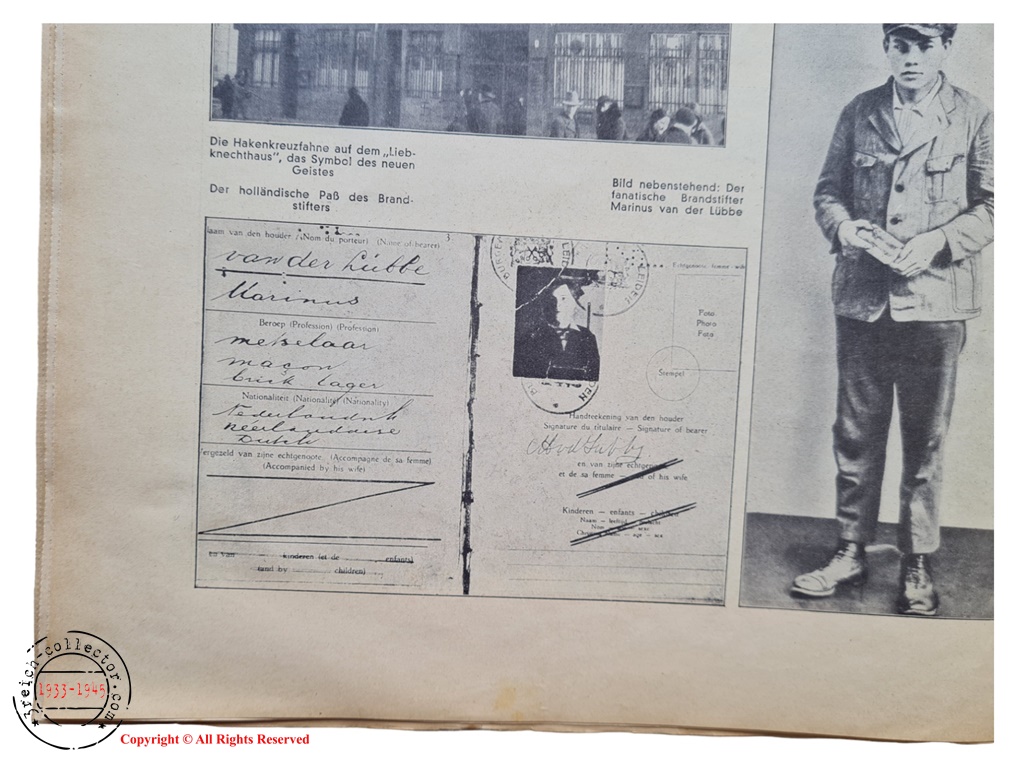 Die Hakenkreuzfahne auf dem „Lieb-
knechthaus", das Symbol des neuen
Geistes
Der holländische Paß des Brand-
stifters
Bild nebenstehend: Der
fanatische Brandstifter
Marinus van der Lübbe
aam van den houder (Nom du porteur) (Name of bearer)
3
van der Lübbe
Marinus
Beroep (Profession) (Profession)
metselaar
maçon
brick lager
Nationaliteit (Nationalité) (Nationality)
Nederlandsch
Neerlandaise
Dutch
ergezeld van zijne echtgenoote (Accompagné de sa femme)
(Accompanied by his wife)
en van kinderen (et de enfants)
(and by children)
LEIDEN
LEIDEN
Echtgenoote femme wife
Foto
Photo
Foto
Stempel
Handteekening van den houder
Signature du titulaire — Signature of bearer
en van zijne echtgenoote
et de sa femme — of his wife
Kinderen — enfants — children
Naam
Nom
age — sex
3reich-collector.com
1933-1945
Copyright © All Rights Reserved